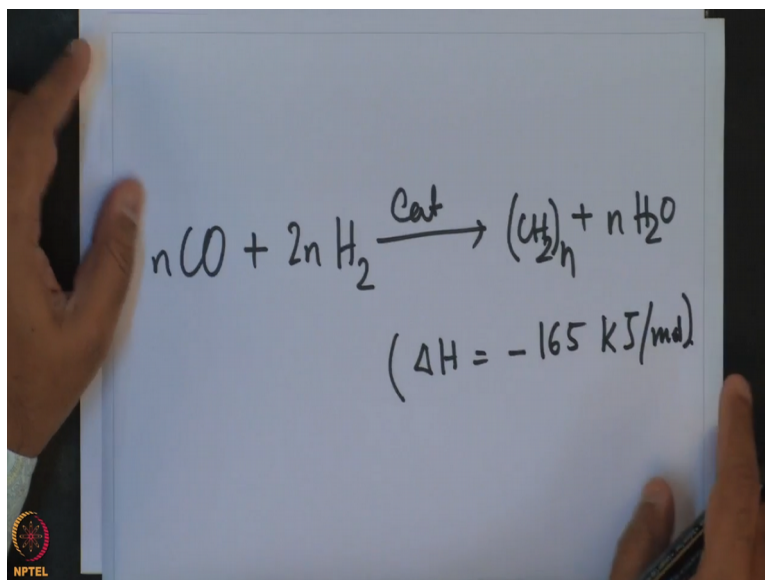 Cat
nCO + 2n H₂ ⟶ (CH₂)ₙ + n H₂O
(ΔH = - 165 KJ/mol)
NPTEL